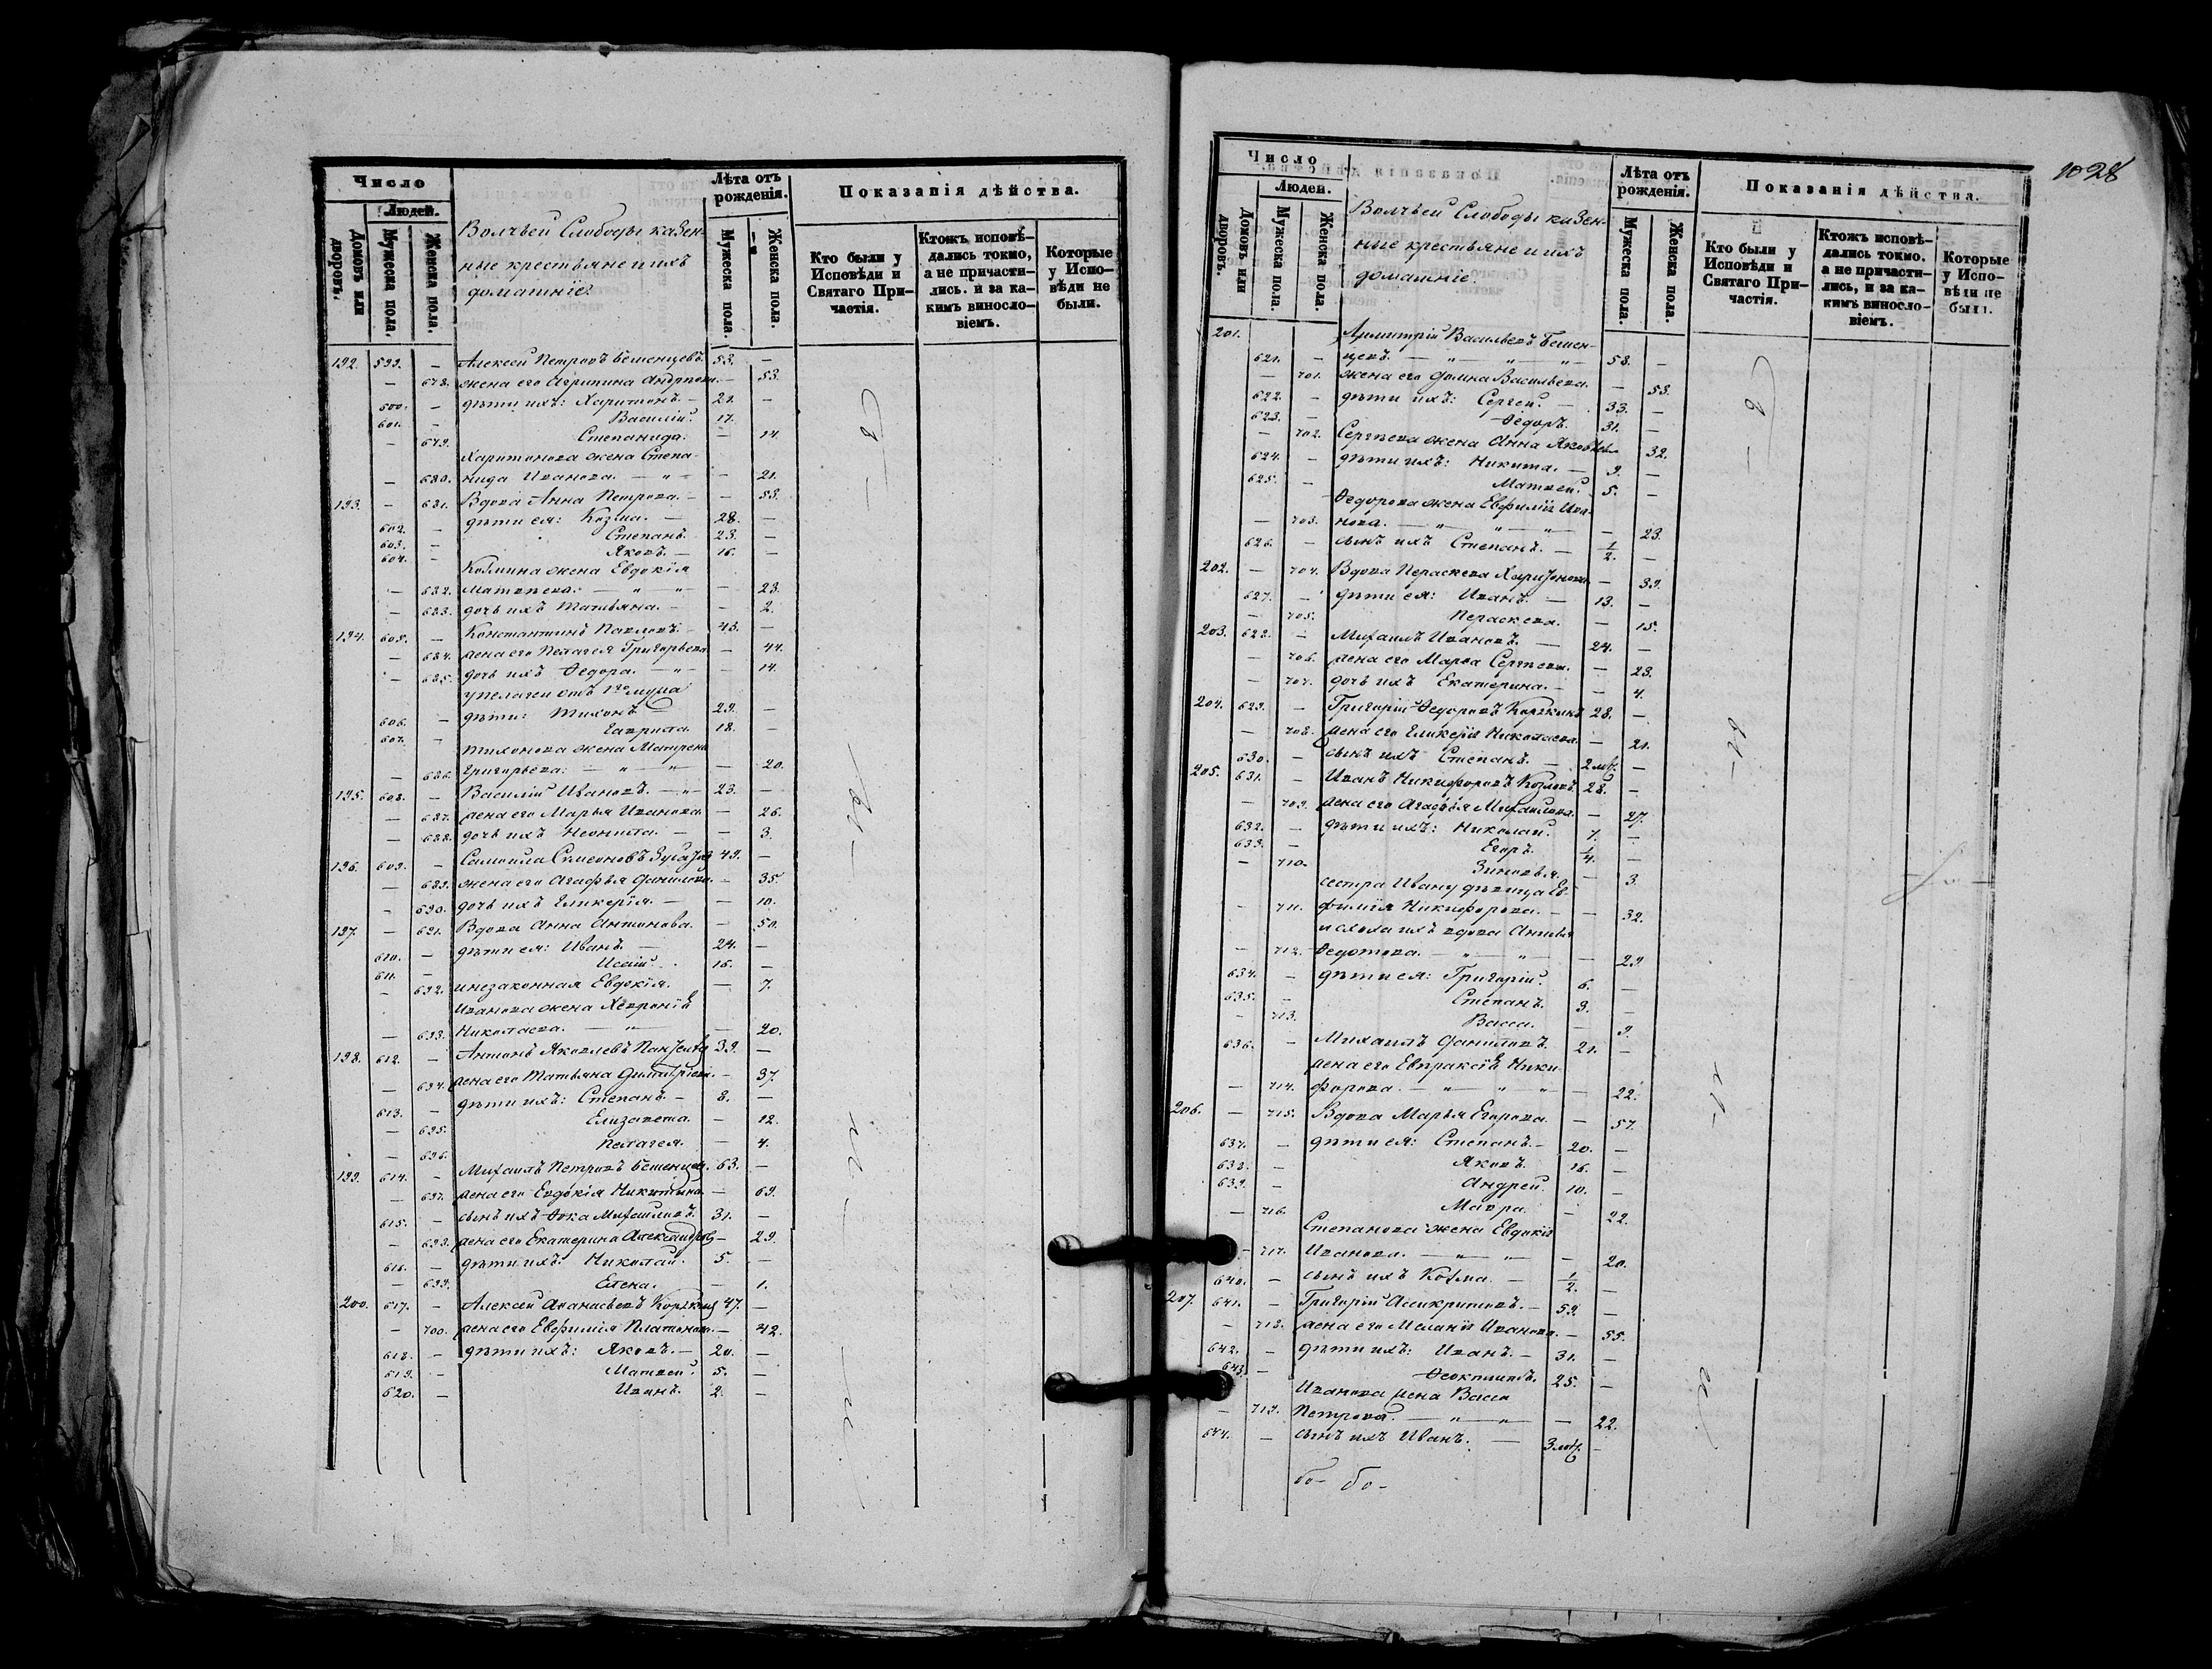 1028
Число
Людей.
Домовъ или дворовъ.
Мужеска пола.
Женска пола.
Волчьей Слободы казен-
ные крестьяне и ихъ
домашніе.
Лѣта отъ рожденія.
Мужеска пола.
Женска пола.
Показанія дѣйства.
Кто были у Исповѣди и Святаго При-частія.
Ктожъ исповѣ-дались токмо, а не причасти-лись. и за ка-кимъ винosло-віемъ.
Которые у Испо-вѣди не были.
192. 599. — Алексей Петровъ Бешенцевъ. 53. —
— 678. жена его Агрипина Андреева. — 53.
600. — дѣти ихъ: Харитонъ. — 21. —
601. — Василій. 17.
— 679. Степанида. — 14.
Харитонова жена Степа-
— 680. нида Иванова. — „ — — 21.
193. — 681. Вдова Анна Петрова. — — 53.
602. — дѣти ея: Козма. — 28. —
603. — Степанъ. 23. —
604. — Яковъ. — 16. —
Козмина жена Евдокія
— 682. Матвеева. — „ — „ — — 23.
— 683. дочь ихъ Татьяна. — — 2.
194. 605. — Константинъ Павловъ. — 43. —
— 684. жена его Пелагея Григорьева. — 44.
— 685. дочь ихъ Ѳедора. — „ — — 14.
у Пелагеи отъ 1го мужа
606. — дѣти: Тихонъ 29. —
607. — Гаврила. 18. —
Тихонова жена Матрена
— 686. Григорьева. — „ — „ — — 20.
195. 608. — Василій Ивановъ. — „ — 23. —
— 687. жена его Марья Иванова — 26.
— 688. дочь ихъ Неонила. — — 3.
196. 609. — Самойла Симеоновъ 49. —
— 689. жена его Агафья Данилова. — 35.
— 690. дочь ихъ Гликерія. — — 10.
197. — 691. Вдова Анна Антонова. — 50.
610. — дѣти ея: Иванъ. — 24. —
611. — Исаій. 16. —
— 692. и незаконная Евдокія. — 7.
Иванова жена Хевронія
— 693. Николаева. — „ — — 20.
198. 612. — Антонъ Яковлевъ 39. —
— 694. жена его Татьяна Димитріева. — 37.
613. — дѣти ихъ: Степанъ — 8. —
— 695. Елизавета. — 12.
— 696. Пелагея. — 4.
199. 614. — Михаилъ Петровъ Бешенцевъ. 63. —
— 697. жена его Евдокія Никитина. — 69.
615. — сынъ ихъ Ѳока Михайловъ. 31. —
— 698. жена его Екатерина Александрова — 29.
616. — дѣти ихъ: Николай. 5. —
— 699. Елена. — 1.
200. 617. — Алексей Аѳанасьевъ Коржкинъ 47. —
— 700. жена его Евфимія Платонова. — 42.
618. — дѣти ихъ: Яковъ. — 20. —
619. — Матвей. 5. —
620. — Иванъ. 2. —
Число
Людей.
Домовъ или дворовъ.
Мужеска пола.
Женска пола.
Волчьей Слободы казен-
ные крестьяне и ихъ
домашніе.
Лѣта отъ рожденія.
Мужеска пола.
Женска пола.
Показанія дѣйства.
Кто были у Исповѣди и Святаго При-частія.
Ктожъ исповѣ-дались токмо. а не причасти-лись, и за ка-кимъ винosло-віемъ.
Которые у Испо-вѣди не были.
201. Димитрій Васильевъ Бешен-
621. — цевъ. — „ — „ — „ — 58. —
— 701. жена его Домна Васильева. — 53.
622. — дѣти ихъ: Сергей. — 33. —
623. — Ѳедоръ. 31. —
— 702. Сергѣева жена Анна Яковлев. 32.
624. — дѣти ихъ: Никита. — 9. —
625. — Матвей. 5. —
Ѳедорова жена Евфимія Ива-
— 703. нова. — „ — „ — „ — — 23.
626. — сынъ ихъ Степанъ. — 1/2. —
202. — 704. Вдова Параскева Харитонова. — 39.
627. — дѣти ея: Иванъ. — 13. —
— 705. Параскева. — 15.
203. 628. — Михаилъ Ивановъ. — 24. —
— 706. жена его Марѳа Сергѣева. — 23.
— 707. дочь ихъ Екатерина. — — 4.
204. 629. — Григорій Ѳедоровъ Коржкинъ 28. —
— 708. жена его Гликерія Николаева. — 21.
630. — сынъ ихъ Степанъ. — 2 —
205. 631. — Иванъ Никифоровъ Козловъ. 28. —
— 709. жена его Агафья Михайлова. — 27.
632. — дѣти ихъ: Николай. 7. —
633. — Егоръ. 1/4. —
— 710. Зиновья. — 3.
сестра Ивану дѣвица Ев-
— 711. фимія Никифорова. — — 32.
и сноха ихъ вдова
— 712. Ѳедотова. — „ — „ — — 29.
634. — дѣти ея: Григорій. 6. —
635. — Степанъ. 3. —
— 713. Васса. — 9.
636. — Михаилъ Даниловъ. 21. —
жена его Евпраксія Ники-
— 714. форова. — „ — „ — „ — — 22.
206. — 715. Вдова Марья Егорова. — 57.
637. — дѣти ея: Степанъ. — 20. —
638. — Яковъ. 16. —
639. — Андрей. 10. —
— 716. Мавра. — 22.
Степанова жена Евдокія
— 717. Иванова. — „ — „ — — 20.
640. — сынъ ихъ Козма. — 1/2. —
207. 641. — Григорій Асинкритовъ. — 59. —
— 718. жена его Меланія Иванова. — 55.
642. — дѣти ихъ: Иванъ. — 31. —
643. — Ѳеоктистъ. 25. —
Иванова жена Васса
— 719. Петрова. — „ — „ — — 22.
644. — сынъ ихъ Иванъ. — 3 —